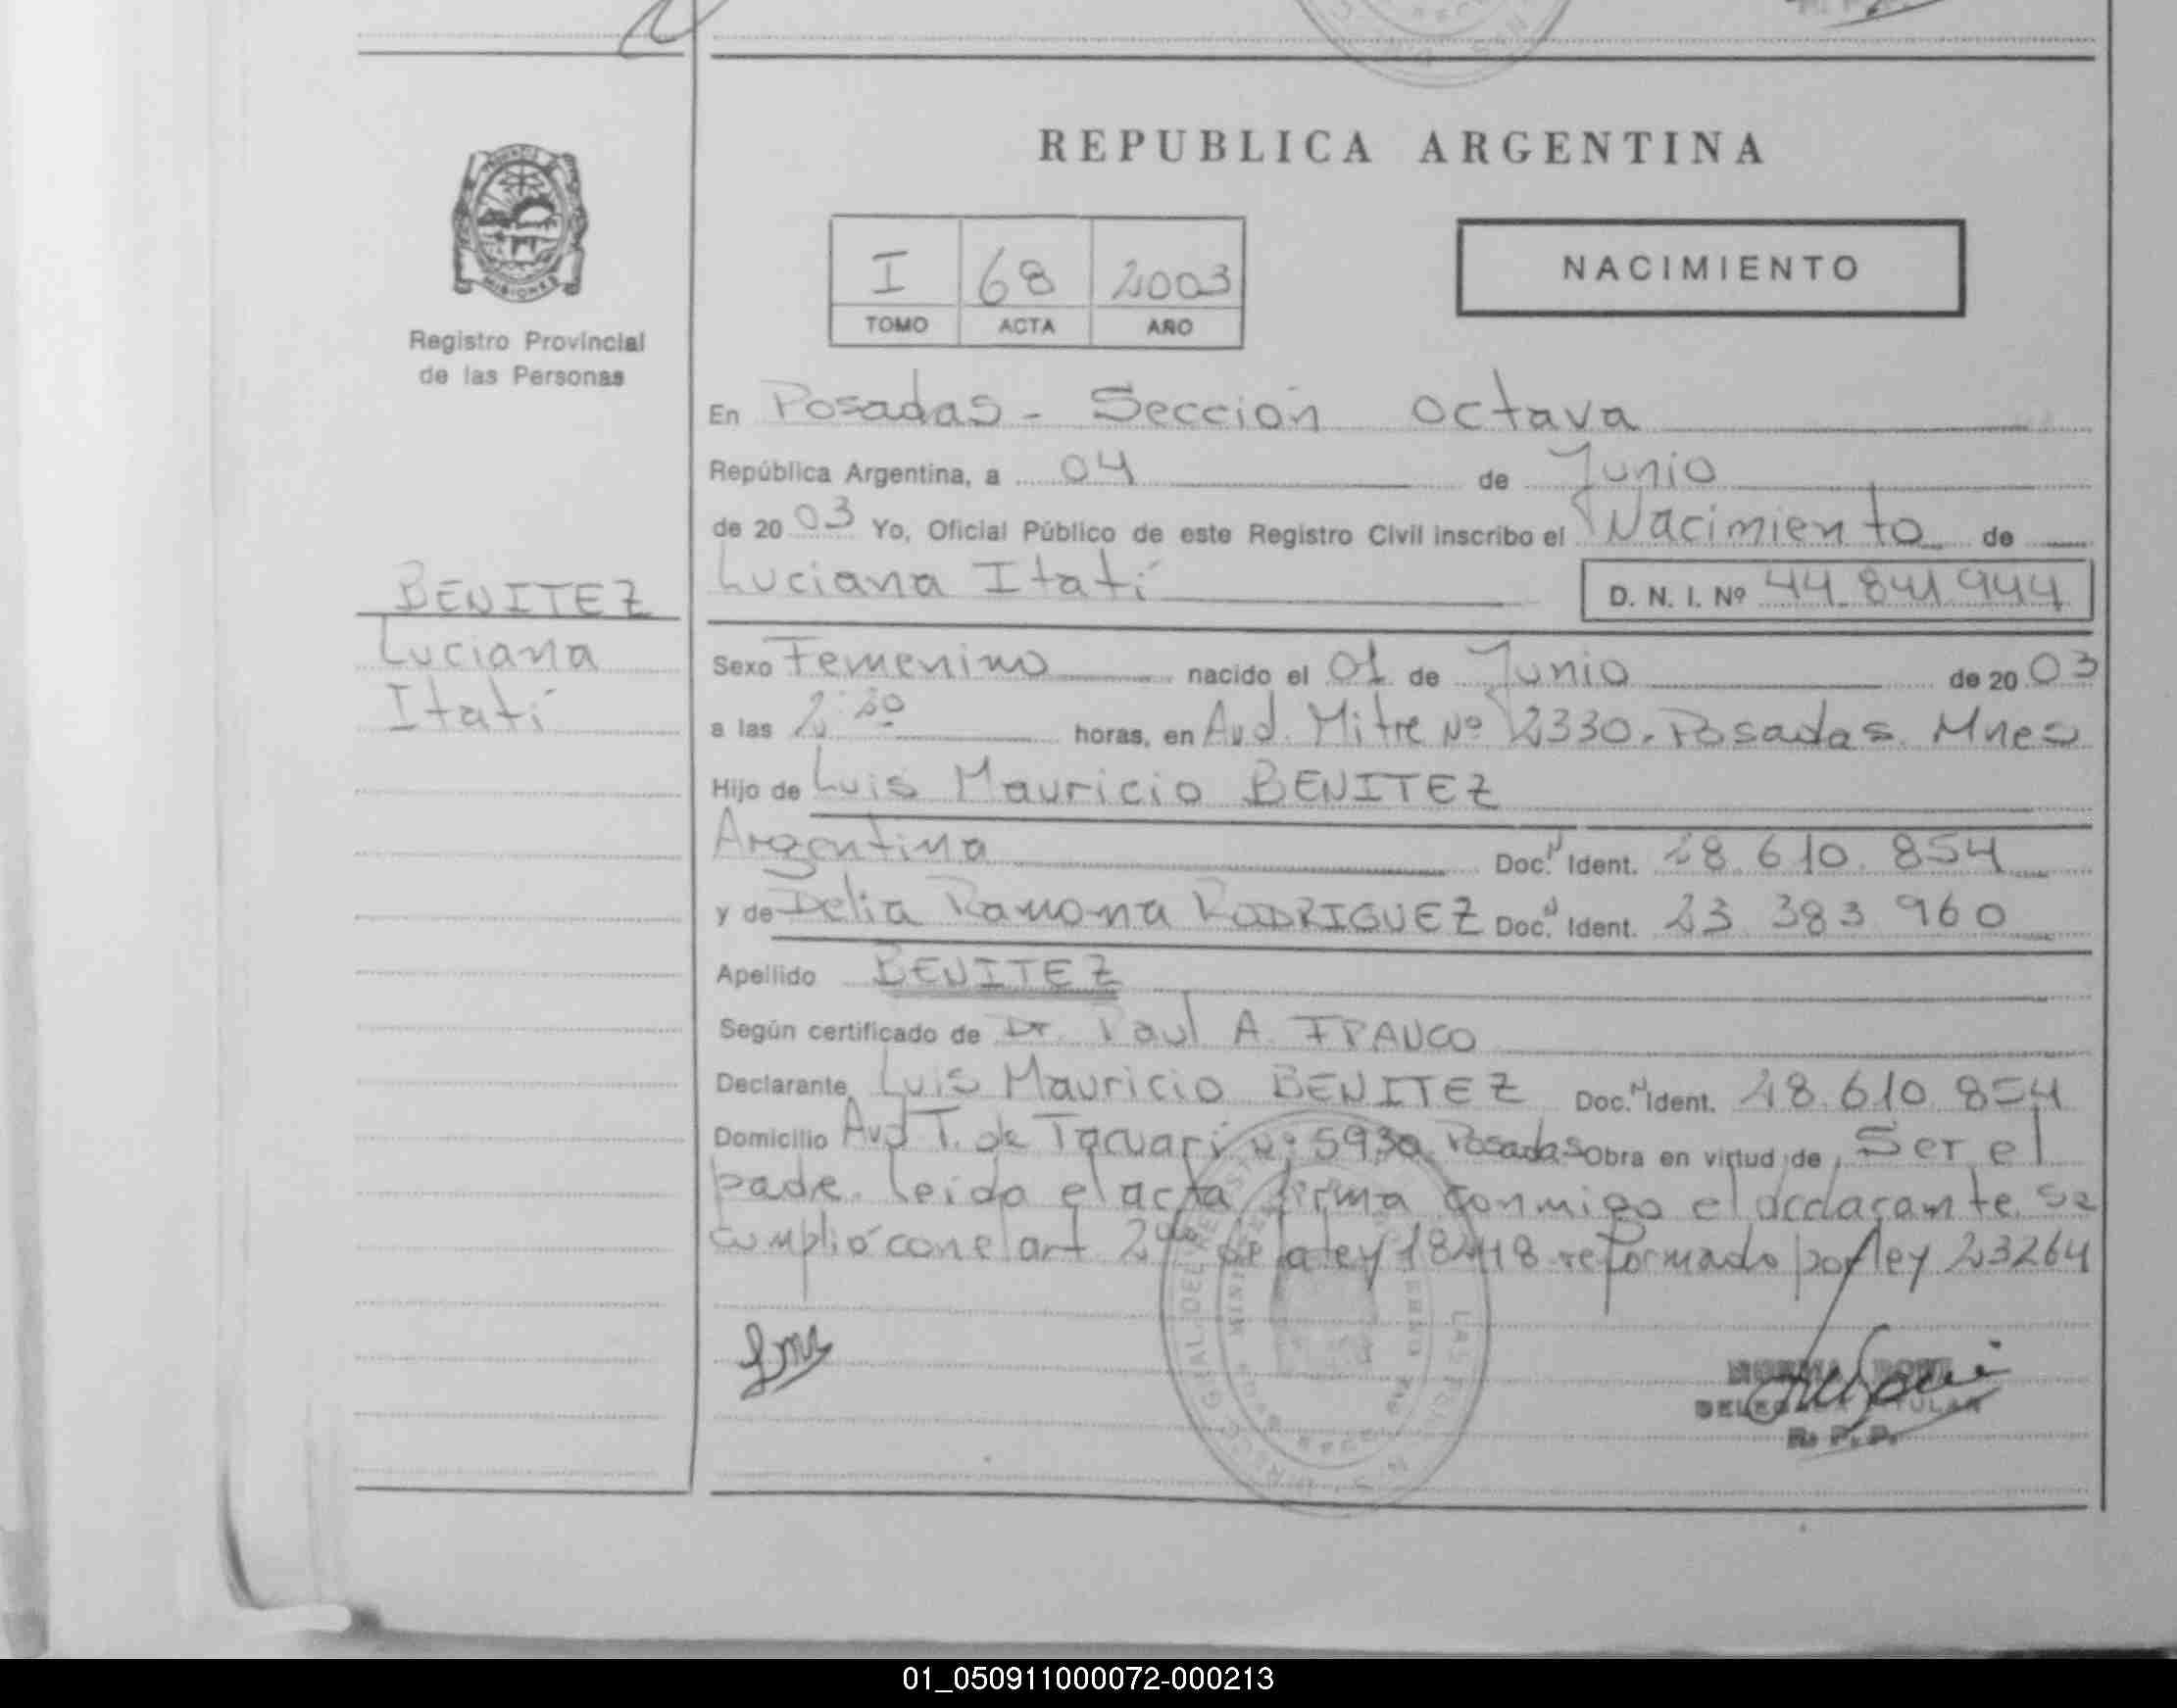 REPUBLICA ARGENTINA
MISIONES
Registro Provincial
de las Personas
I 68 2003
TOMO ACTA AÑO
NACIMIENTO
En Posadas - Sección octava
República Argentina, a 04 de Junio
de 2003 Yo, Oficial Público de este Registro Civil inscribo el Nacimiento de
BENITEZ
Luciana
Itatí
Luciana Itatí D. N. I. Nº 44.841.944
Sexo Femenino nacido el 01 de Junio de 2003
a las horas, en Avd. Mitre Nº 2330. Posadas. Mnes
Hijo de Luis Mauricio BENITEZ
Argentina Doc. N Ident. 28.610.854
y de Delia Ramona RODRIGUEZ Doc. N Ident. 23.383.960
Apellido BENITEZ
Según certificado de Dr. A. FRANCO
Declarante Luis Mauricio BENITEZ Doc. N Ident. 28.610.854
Domicilio Avd T. de Tacuarí Nº 5930. Posadas Obra en virtud de Ser el
padre. leida el acta firma conmigo el declarante. se
cumplió con el art 2do de la ley 18248 reformado por ley 23264
NORMA
DELEGADA TITULAR
R. P. P.
01_050911000072-000213